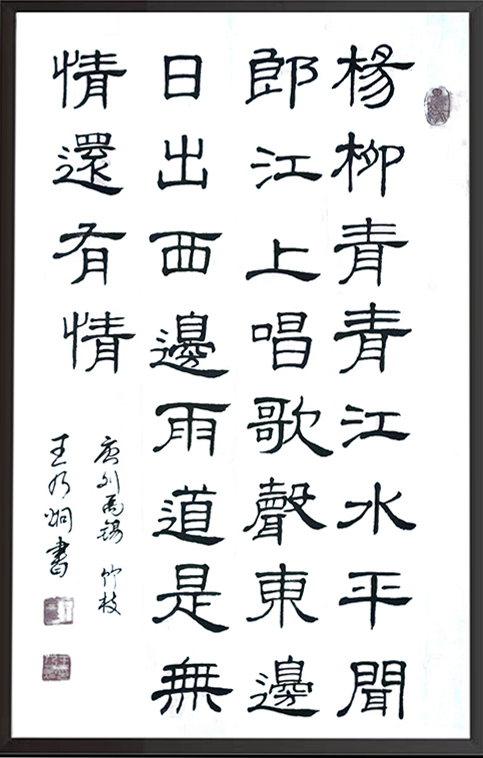 楊柳青青江水平聞
郎江上唱歌聲東邊
日出西邊雨道是無
情還有情
唐刘禹锡 竹枝
王乃炯書